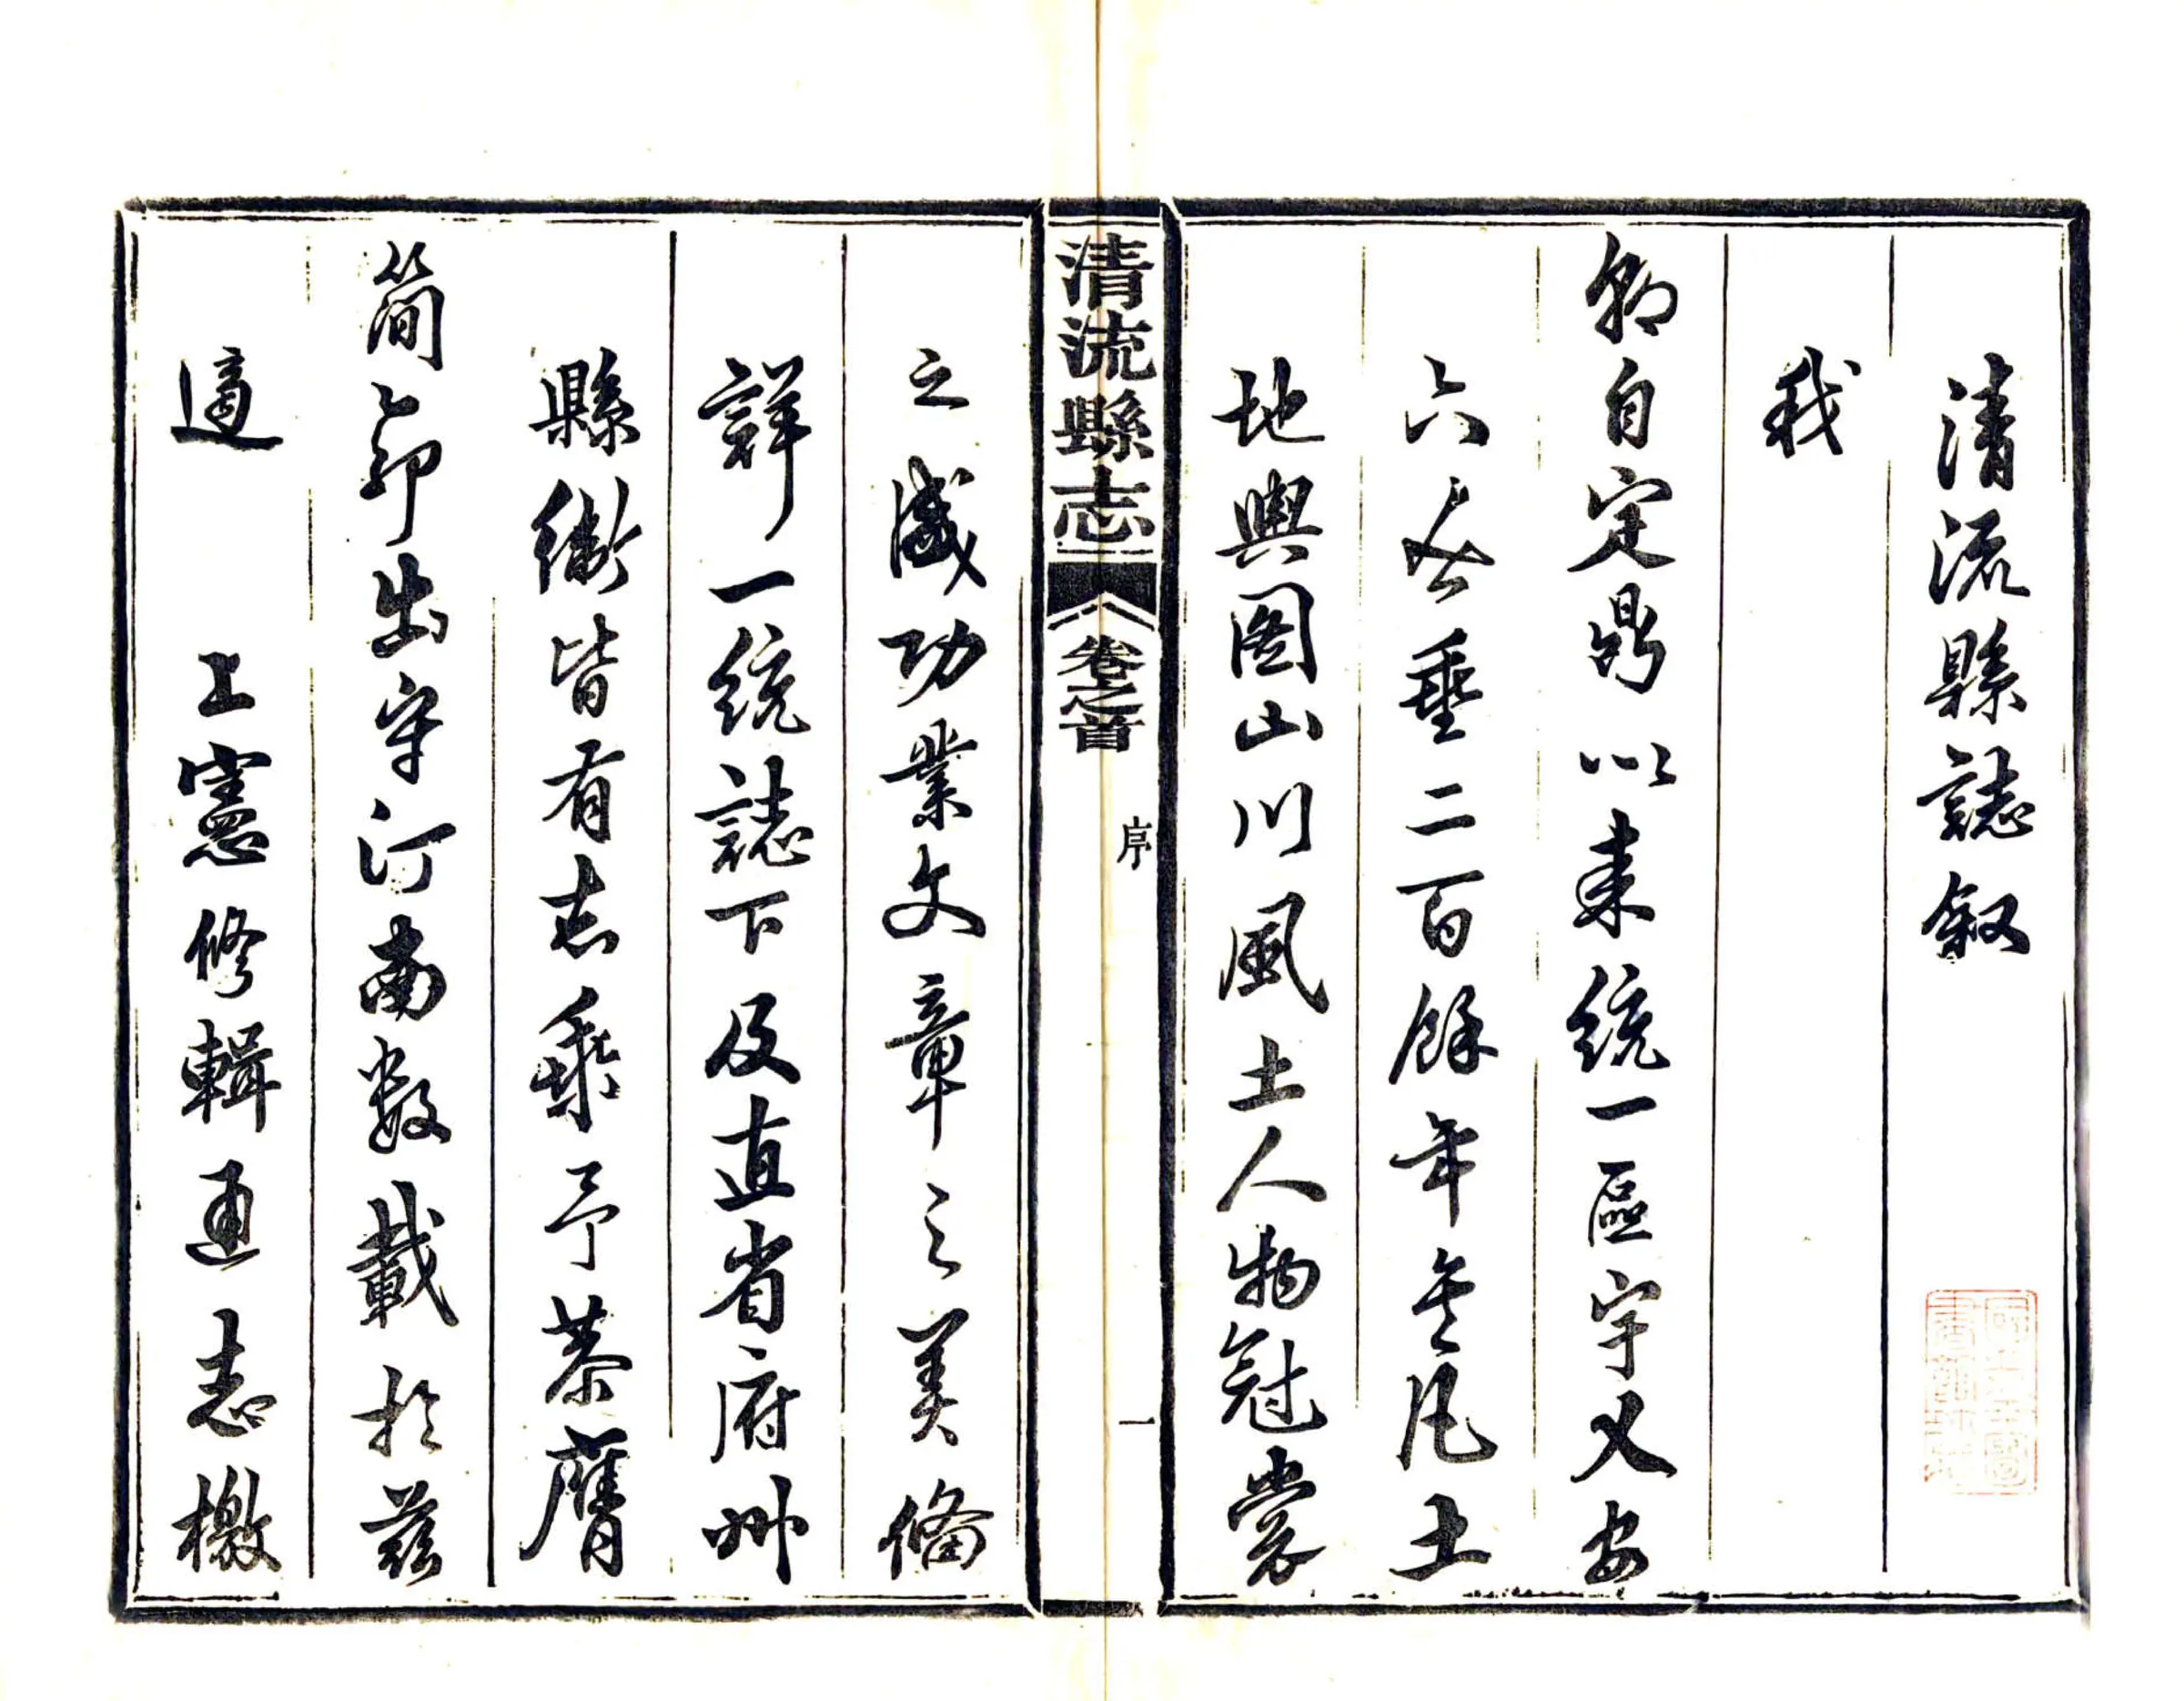 清流縣誌叙
我
朝自定鼎以来統一區宇乂安
六垂二百餘年矣凡土
地輿圖山川風土人物冠裳
清流縣志 卷之首 序 一
之盛功業文章之美備
詳一統誌下及直省府州
縣衛皆有志乘予恭膺
簡命出守汀南数載於茲
適 上憲修輯通志檄